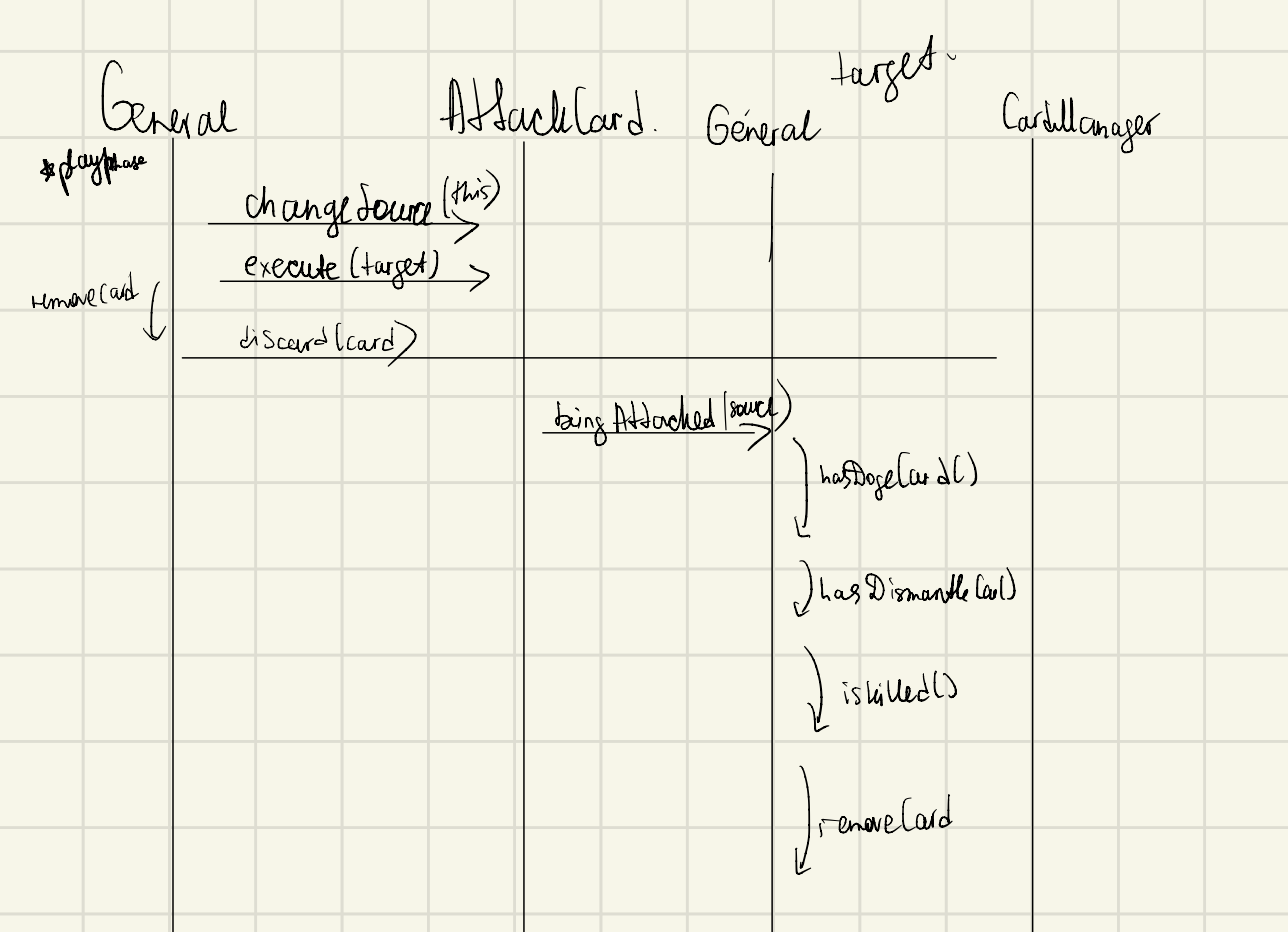 target.
General
AttackCard.
General
CardManager
*playphase
changeSource(this)
execute(target)
removeCard
discard(card)
beingAttacked(source)
hasDogeCard()
hasDismantleCar()
isKilled()
removeCard